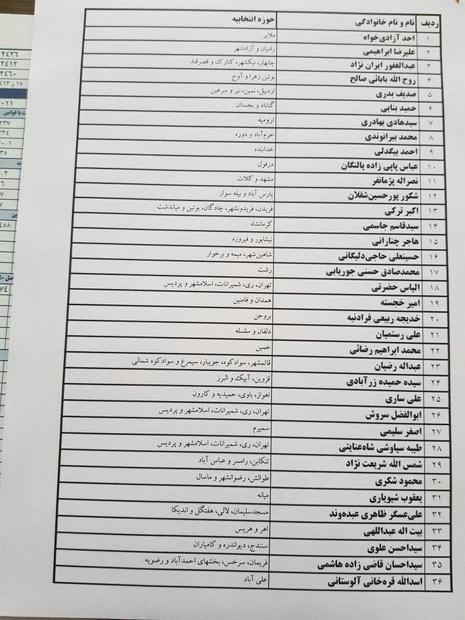 ردیف نام و نام خانوادگی حوزه انتخابیه
۱ احد آزادی‌خواه ملایر
۲ علیرضا ابراهیمی رامیان و آزادشهر
۳ عبدالغفور ایران نژاد چابهار، نیکشهر، کنارک و قصرقند
۴ روح الله بابائی صالح بوئین زهرا و آوج
۵ صدیف بدری اردبیل، نمین، نیر و سرعین
۶ حمید بنایی گناباد و بجستان
۷ سیدهادی بهادری ارومیه
۸ محمد بیرانوندی خرم‌آباد و دوره
۹ احمد بیگدلی خدابنده
۱۰ عباس پاپی زاده پالنگان دزفول
۱۱ نصراله پژمانفر مشهد و کلات
۱۲ شکور پورحسین‌شقلان پارس آباد و بیله سوار
۱۳ اکبر ترکی فریدن، فریدونشهر، چادگان، بوئین و میاندشت
۱۴ سیدقاسم جاسمی کرمانشاه
۱۵ هاجر چنارانی نیشابور و فیروزه
۱۶ حسینعلی حاجی‌دلیگانی شاهین‌شهر، میمه و برخوار
۱۷ محمدصادق حسنی جوریابی رشت
۱۸ الیاس حضرتی تهران، ری، شمیرانات، اسلامشهر و پردیس
۱۹ امیر خجسته همدان و فامنین
۲۰ خدیجه ربیعی فرادنبه بروجن
۲۱ علی رستمیان دلفان و سلسله
۲۲ محمد ابراهیم رضائی خمین
۲۳ عبداله رضیان قائمشهر، سوادکوه، جویبار، سیمرغ و سوادکوه شمالی
۲۴ سیده حمیده زرآبادی قزوین، آبیک و البرز
۲۵ علی ساری اهواز، باوی، حمیدیه و کارون
۲۶ ابوالفضل سروش تهران، ری، شمیرانات، اسلامشهر و پردیس
۲۷ اصغر سلیمی سمیرم
۲۸ طیبه سیاوشی شاه‌عنایتی تهران، ری، شمیرانات، اسلامشهر و پردیس
۲۹ شمس الله شریعت نژاد تنکابن، رامسر و عباس آباد
۳۰ محمود شکری طوالش، رضوانشهر و ماسال
۳۱ یعقوب شیویاری میانه
۳۲ علی‌عسگر ظاهری عبده‌وند مسجدسلیمان، لالی، هفتگل و اندیکا
۳۳ بیت اله عبداللهی اهر و هریس
۳۴ سیداحسن علوی سنندج، دیواندره و کامیاران
۳۵ سیداحسان قاضی زاده هاشمی فریمان، سرخس، بخشهای احمدآباد و رضویه
۳۶ اسدالله قره‌خانی آلوستانی علی آباد